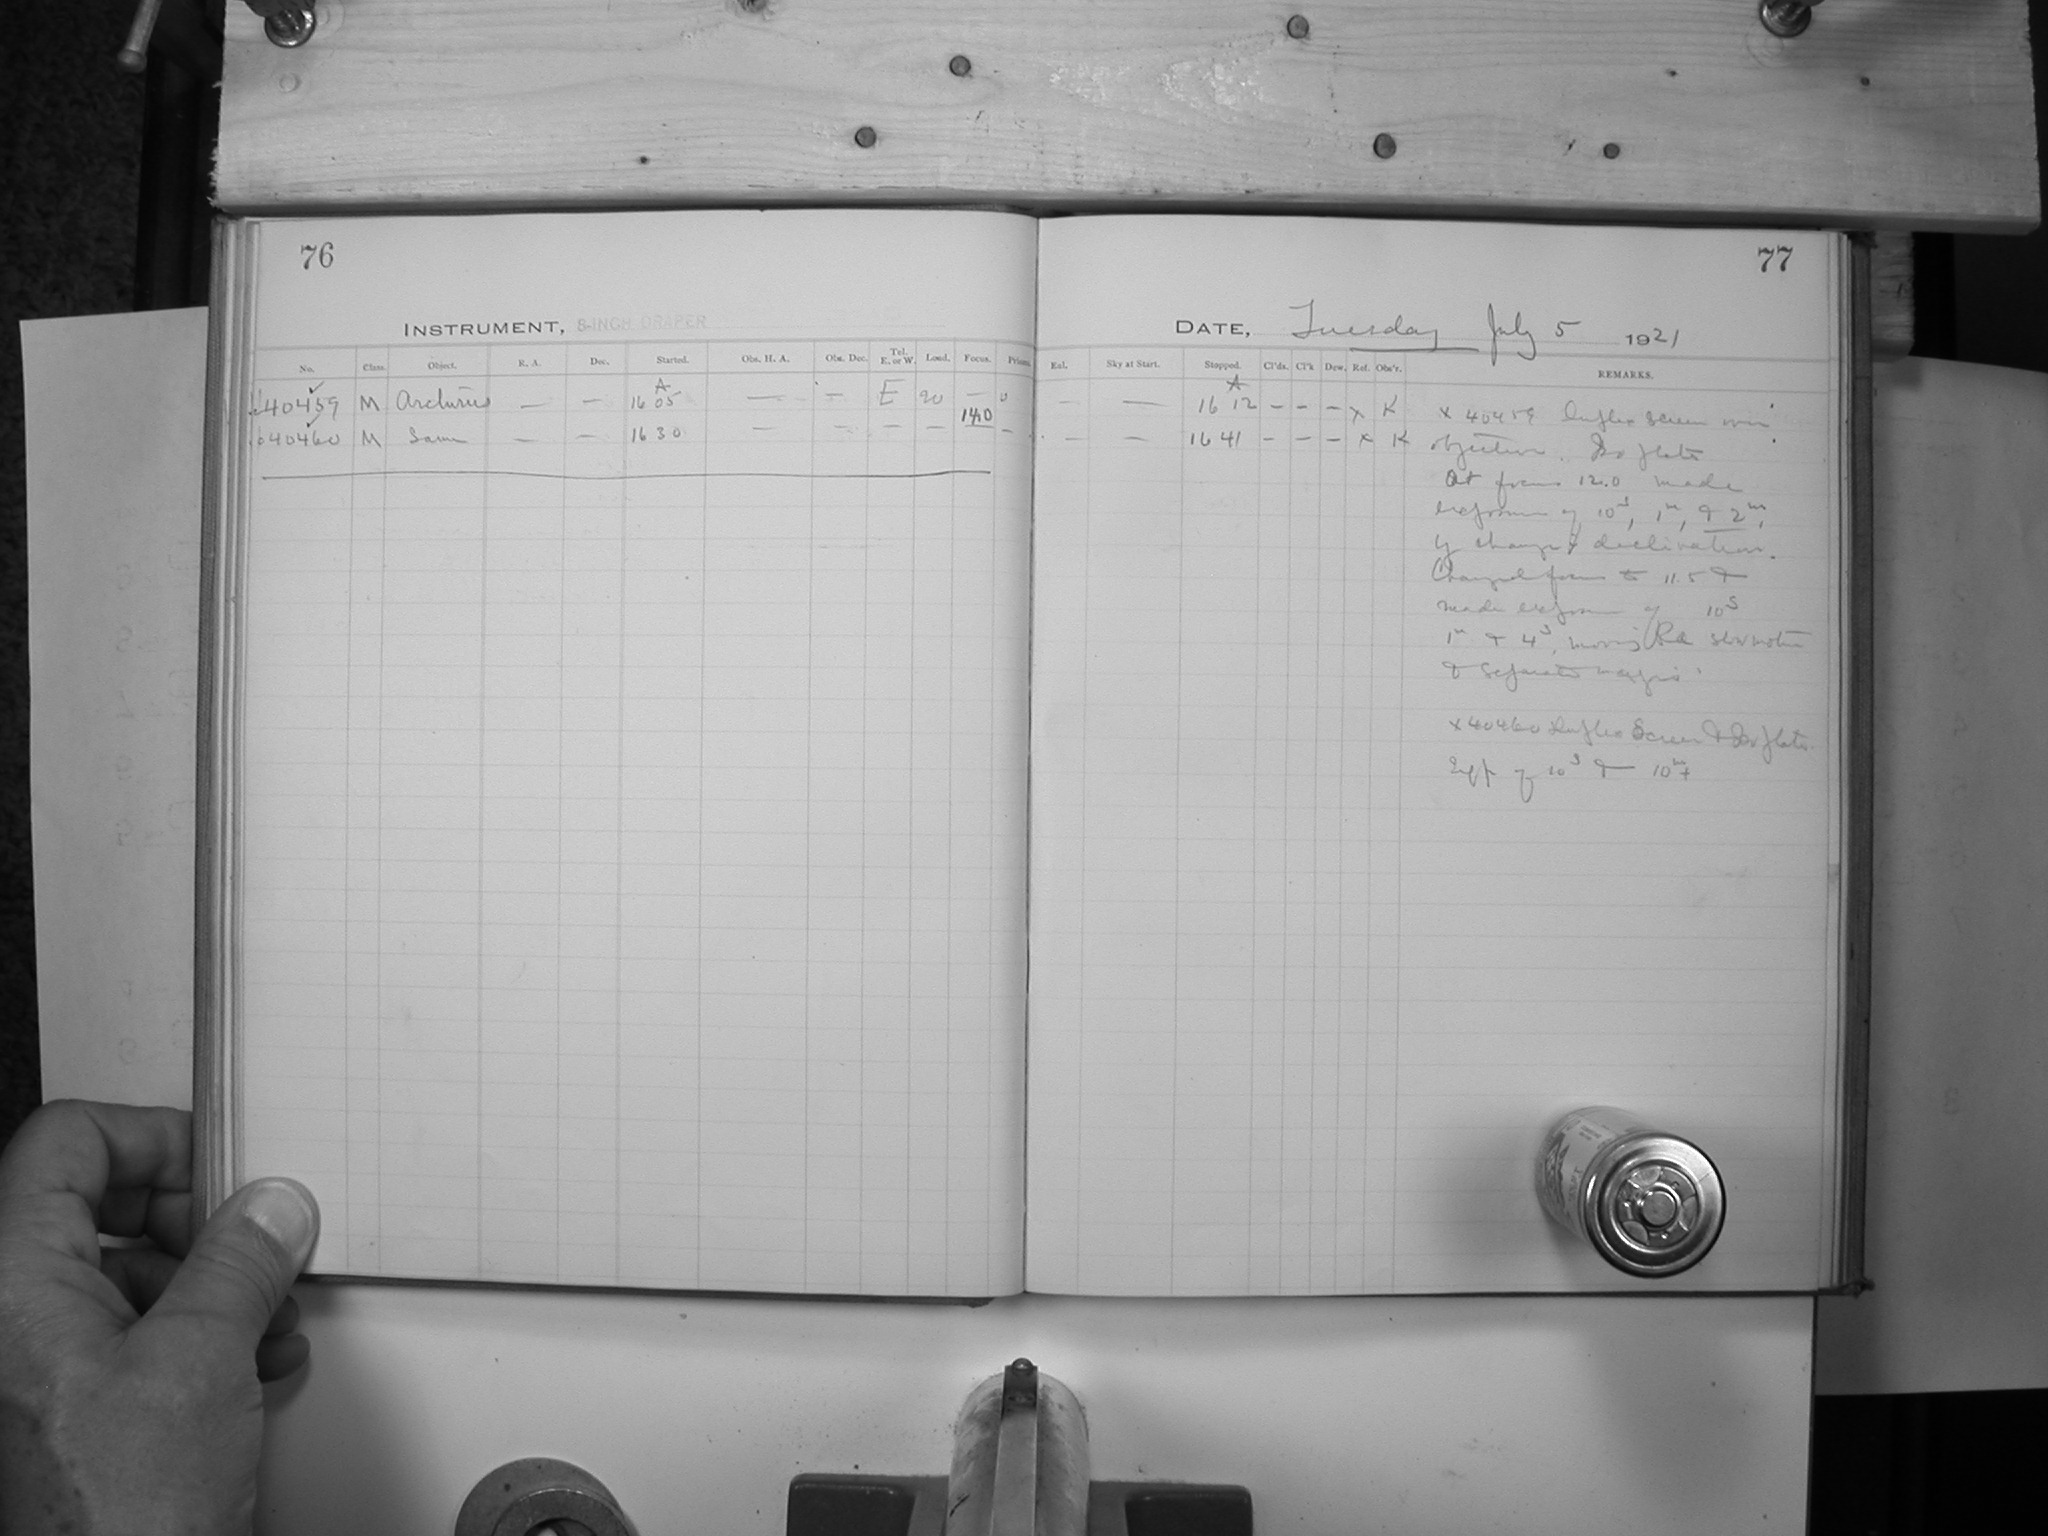 76
INSTRUMENT, 8-INCH DRAPER
No. Class. Object. R. A. Dec. Started. Obs. H. A. Obs. Dec. Tel. E. or W. Load. Focus. Prisms.
A
40459 M Arcturus — — 16 05 — — E 20 —
14.0
40460 M Same — — 16 30 — — — — — —
77
DATE, Tuesday July 5 1921
Eal. Sky at Start. Stopped. Cl'ds. Cl'k Dew. Ref. Obs'r. REMARKS.
A
— — 16 12 – – – x K
— — 16 41 – – – x K
x 40459 Screen over
objective. Iso plate
At focus 12.0 made
exposures of 10s, 1m, & 2m,
by changing declination.
Changed focus to 11.5 &
made exposures of 10s
1m & 4s, moving RA slow motion
& separate
x 40460 Screen & Iso plate.
Exp of 10s & 10m